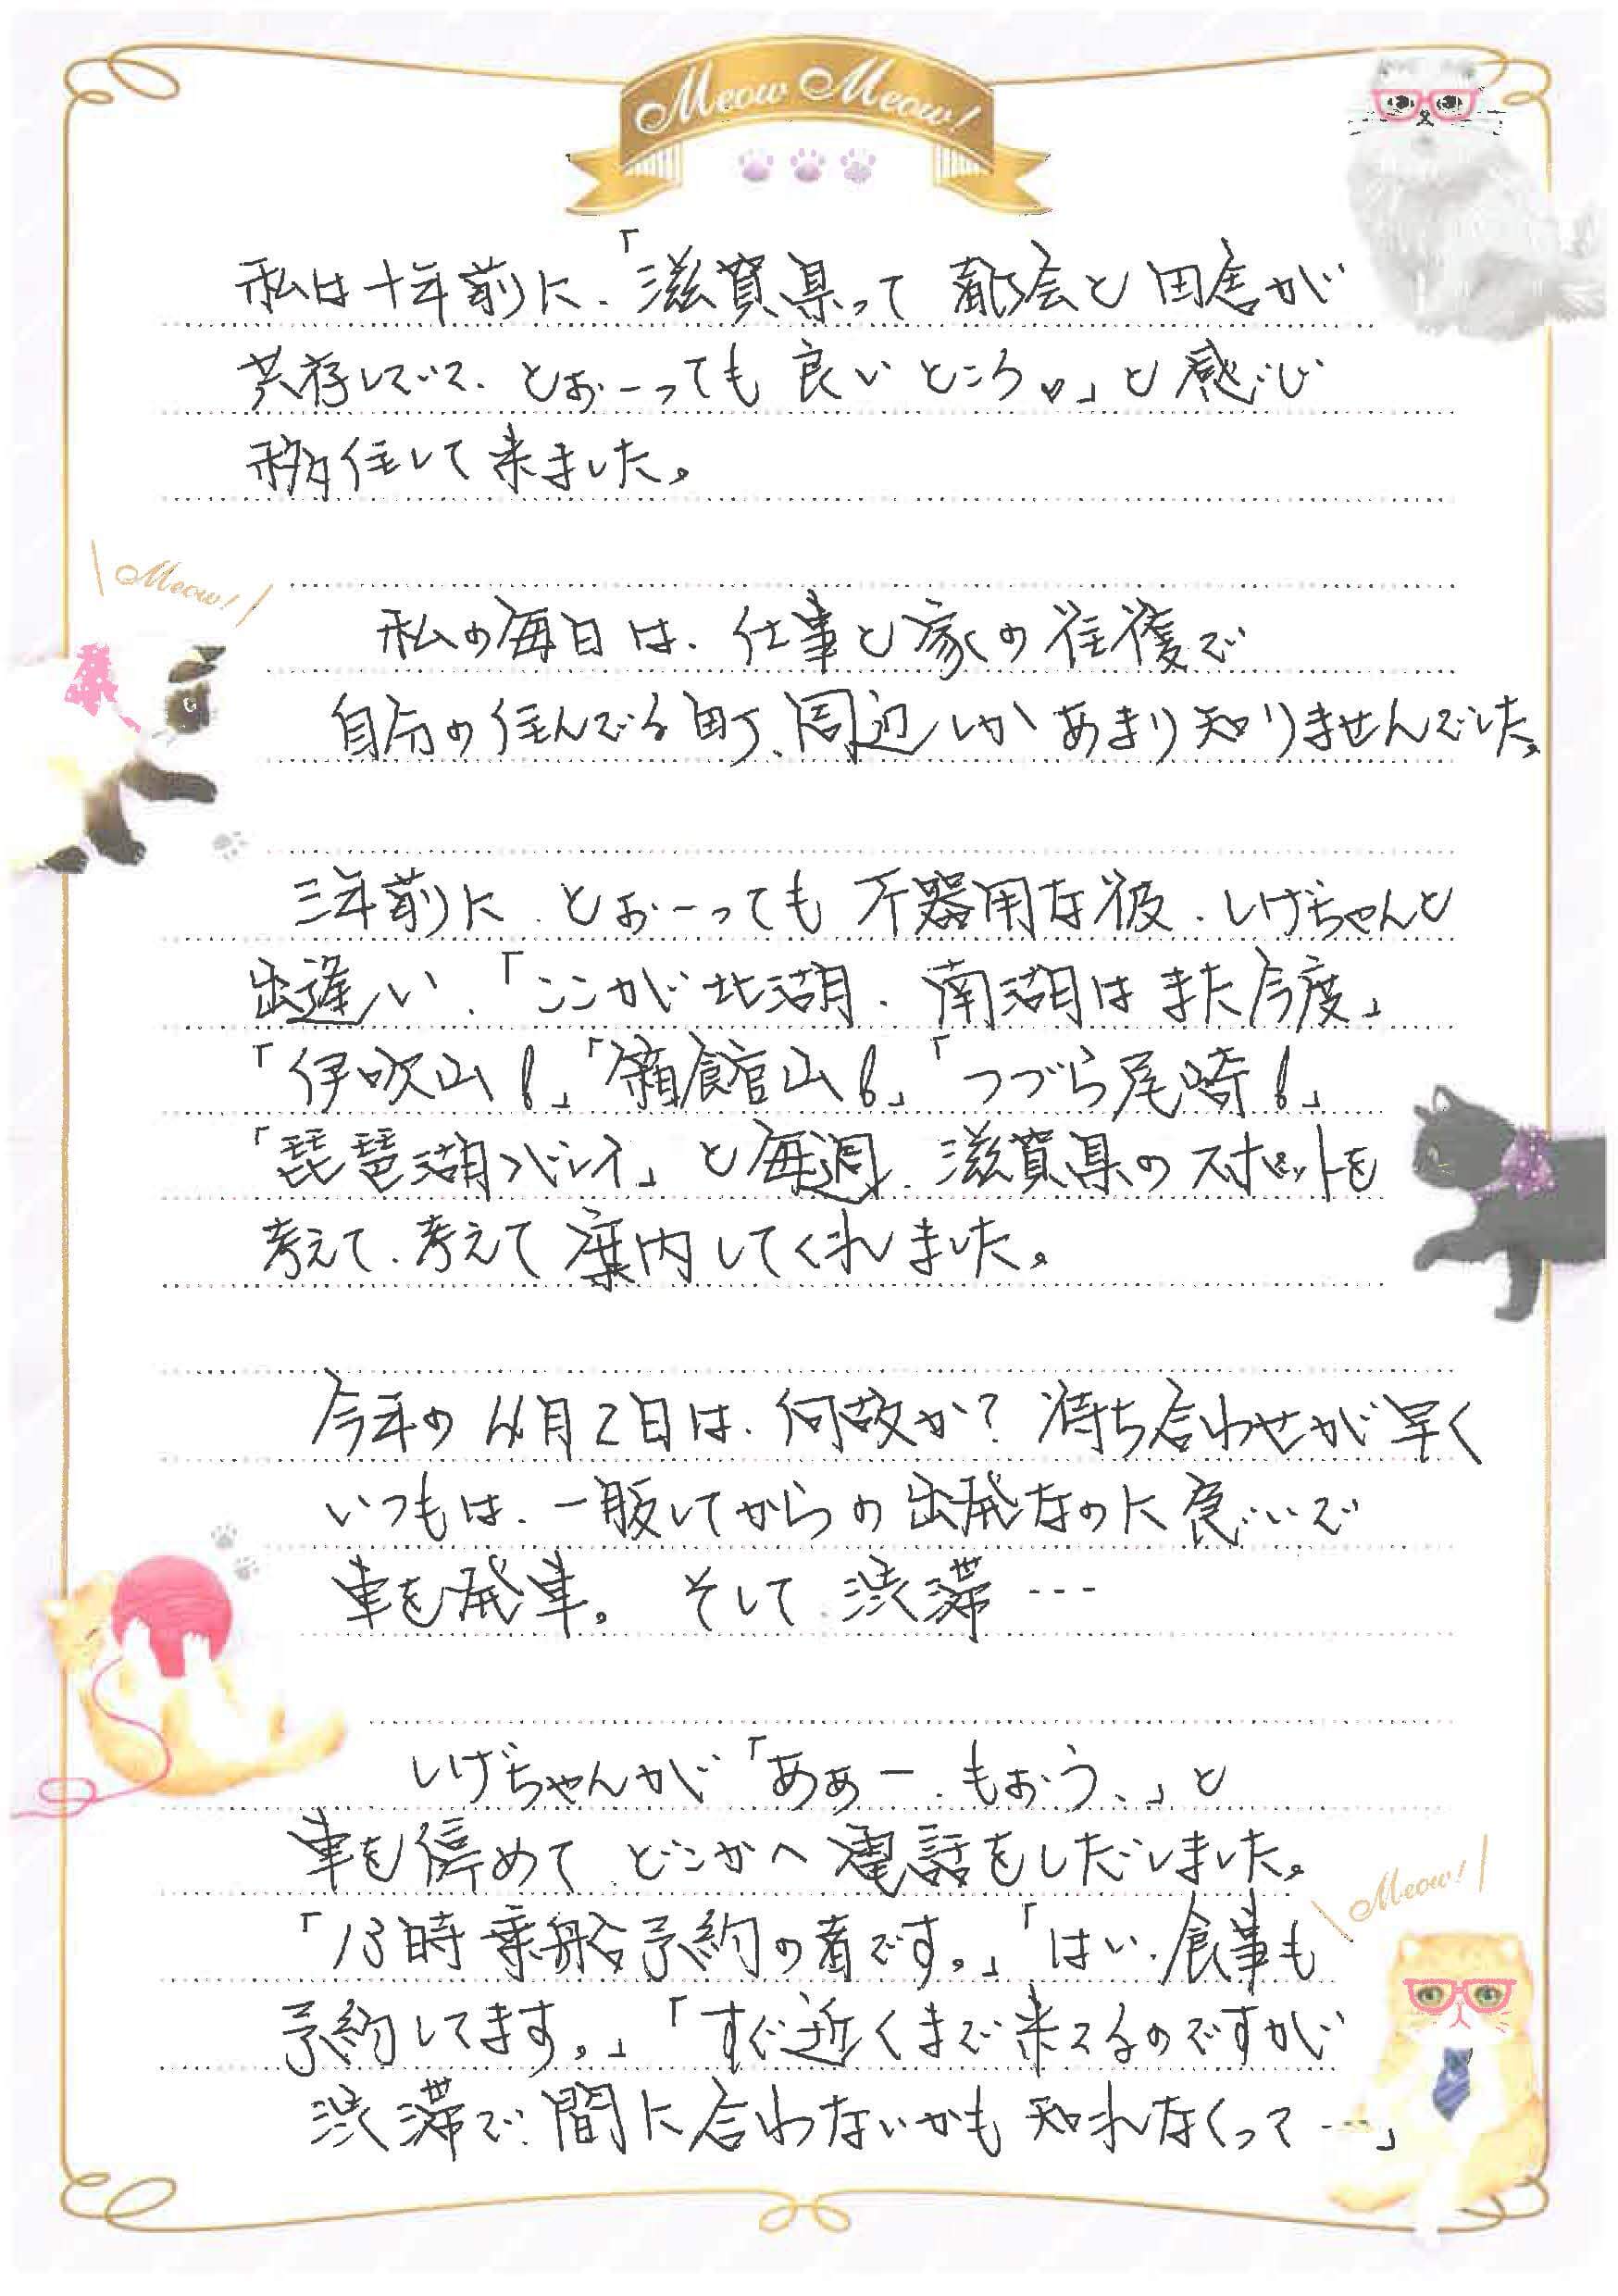 Meow Meow!
私は十年前に、「滋賀県って 都会と田舎が
共存していて、とぉーっても 良いところ♡」と感じ
移住して来ました。
Meow!
私の毎日は、仕事と家の往復で
自分の住んでる町、周辺しかあまり知りませんでした。
三年前に、とぉーっても 不器用な彼、しげちゃんと
出逢い、「ここが北湖、南湖はまた今度」
「伊吹山!」「箱館山!」「つづら尾崎!」
「琵琶湖バレイ」と毎週、滋賀県のスポットを
考えて、考えて案内してくれました。
今年の4月2日は、何故か?待ち合わせが早く
いつもは、一服してからの出発なのに急いで
車を発車。 そして、渋滞---
しげちゃんが「あぁー、もぉう、」と
車を停めて、どこかへ電話をしだしました。
Meow!
「13時乗船予約の者です。」「はい、食事も
予約してます。」「すぐ近くまで来てるのですが
渋滞で、間に合わないかも知れなくって…」